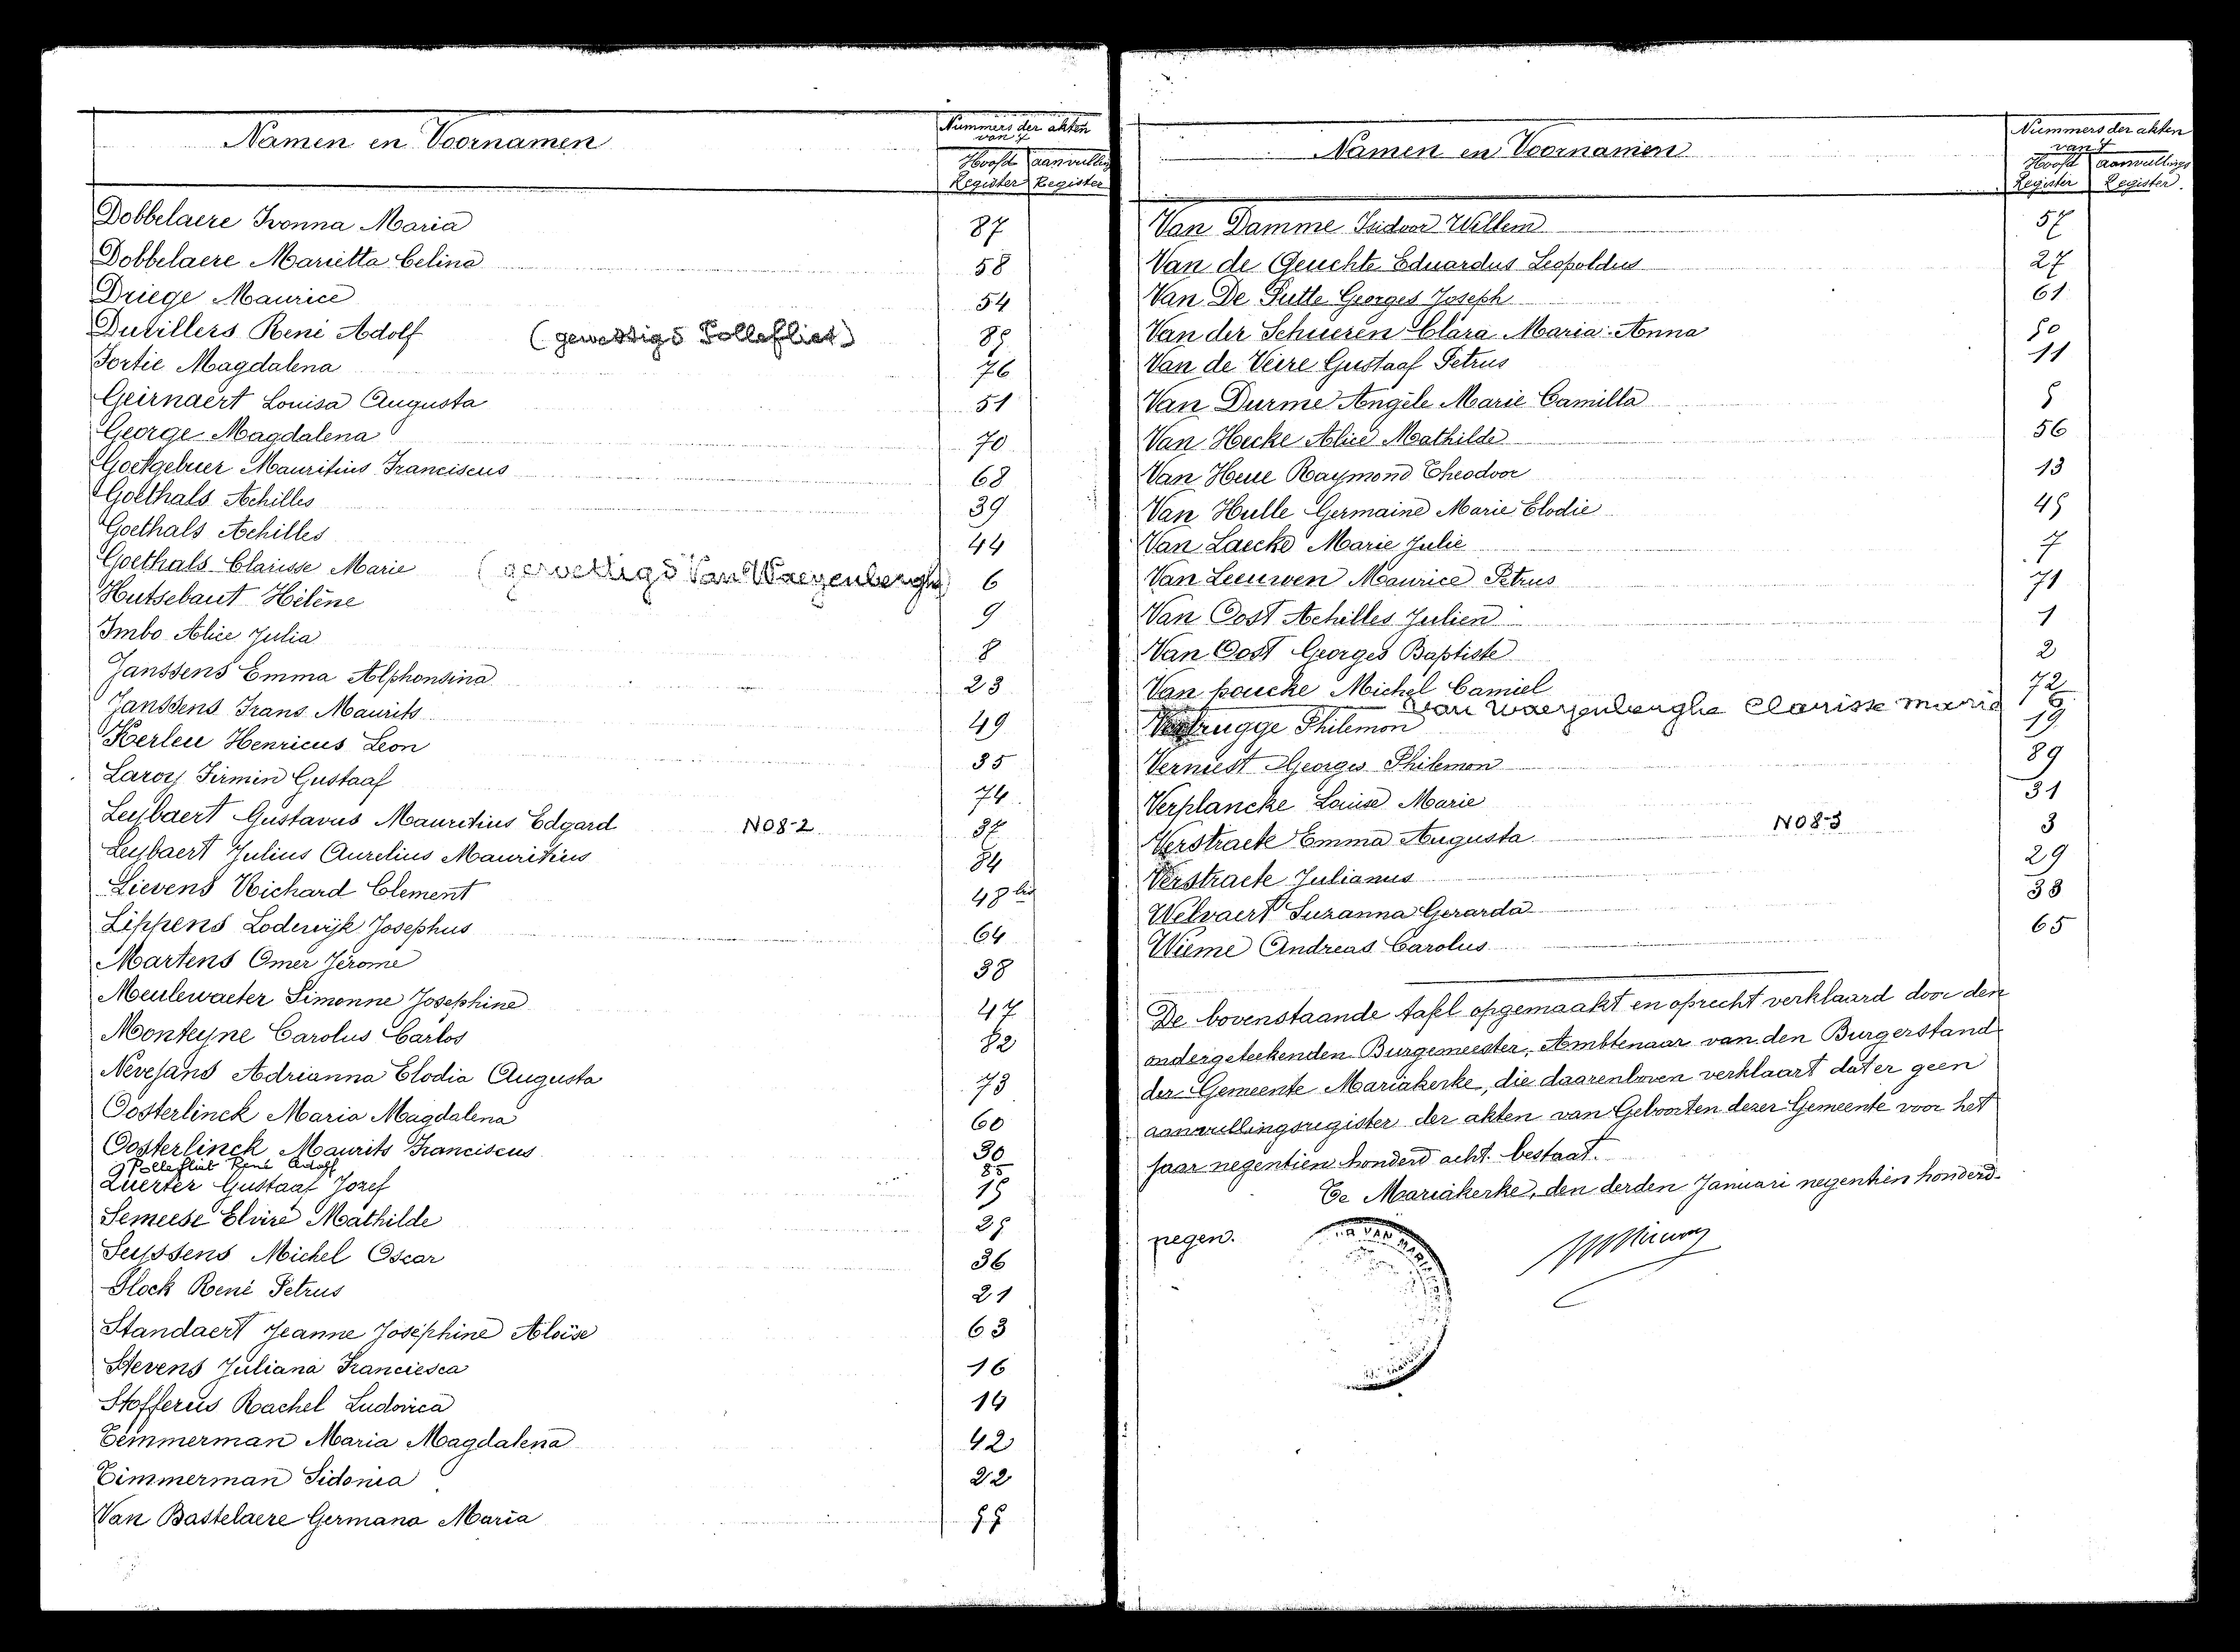 Namen en Voornamen
Nummers der akten
van 't
Hoofd Register
aanvullings Register
Dobbelaere Ivonna Maria 87
Dobbelaere Marietta Celina 58
Driege Maurice 54
Dutillers René Adolf (gewettigd Pollefliet) 85
Fortie Magdalena 76
Geirnaert Louisa Augusta 51
George Magdalena 70
Goetgebuer Mauritius Franciscus 68
Goethals Achilles 39
Goethals Achilles 44
Goethals Clarisse Marie (gewettigd Van Waeyenberghe) 6
Hutsebaut Hélène 9
Imbo Alice Julia 8
Janssens Emma Alphonsina 23
Janssens Frans Maurits 49
Kerleu Henricus Leon 35
Laroy Firmin Gustaaf 74
Leybaert Gustavus Mauritius Edgard N08-2 37
Leybaert Julius Aurelius Mauritius 84
Lievens Richard Clement 48 bis
Lippens Lodewijk Josephus 64
Martens Omer Jérome 38
Meulewaeter Simonne Josephine 47
Monteyne Carolus Carlos 82
Nevejans Adrianna Elodia Augusta 73
Oosterlinck Maria Magdalena 60
Oosterlinck Maurits Franciscus 30
Pollefliet René Adolf 85
Querter Gustaaf Jozef 15
Semeese Elvire Mathilde 25
Seyssens Michel Oscar 36
Slock René Petrus 21
Standaert Jeanne Joséphine Aloïse 63
Stevens Juliana Franciesca 16
Stofferis Rachel Ludovica 14
Temmerman Maria Magdalena 42
Timmerman Sidonia 22
Van Bastelaere Germana Maria 55
Namen en Voornamen
Nummers der akten
van 't
Hoofd Register
aanvullings Register.
Van Damme Isidoor Willem 57
Van de Geuchte Eduardus Leopoldus 27
Van De Putte Georges Joseph 61
Van der Schueren Clara Maria-Anna 50
Van de Veire Gustaaf Petrus 11
Van Durme Angèle Marie Camilla 5
Van Hecke Alice Mathilde 56
Van Heue Raymond Theodoor 13
Van Hulle Germaine Marie Elodie 45
Van Laecke Marie Julie 7
Van Leeuwen Maurice Petrus 71
Van Oost Achilles Julien 1
Van Oost Georges Baptiste 2
Van poucke Michel Camiel 72
Van Waeyenberghe Clarisse Maria 6
Verbrugge Philemon 19
Verniest Georges Philemon 89
Verplancke Louise Marie 31
Verstraete Emma Augusta N08-3 3
Verstraete Julianus 29
Welvaert Suzanna Gerarda 33
Wieme Andreas Carolus 65
De bovenstaande tafel opgemaakt en oprecht verklaard door den
ondergeteekenden Burgemeester, Ambtenaar van den Burgerstand
der Gemeente Mariakerke, die daarenboven verklaart dat er geen
aanvullingsregister der akten van Geboorten dezer Gemeente voor het
jaar negentien honderd acht bestaat.
Te Mariakerke, den derden Januari negentien honderd
negen.